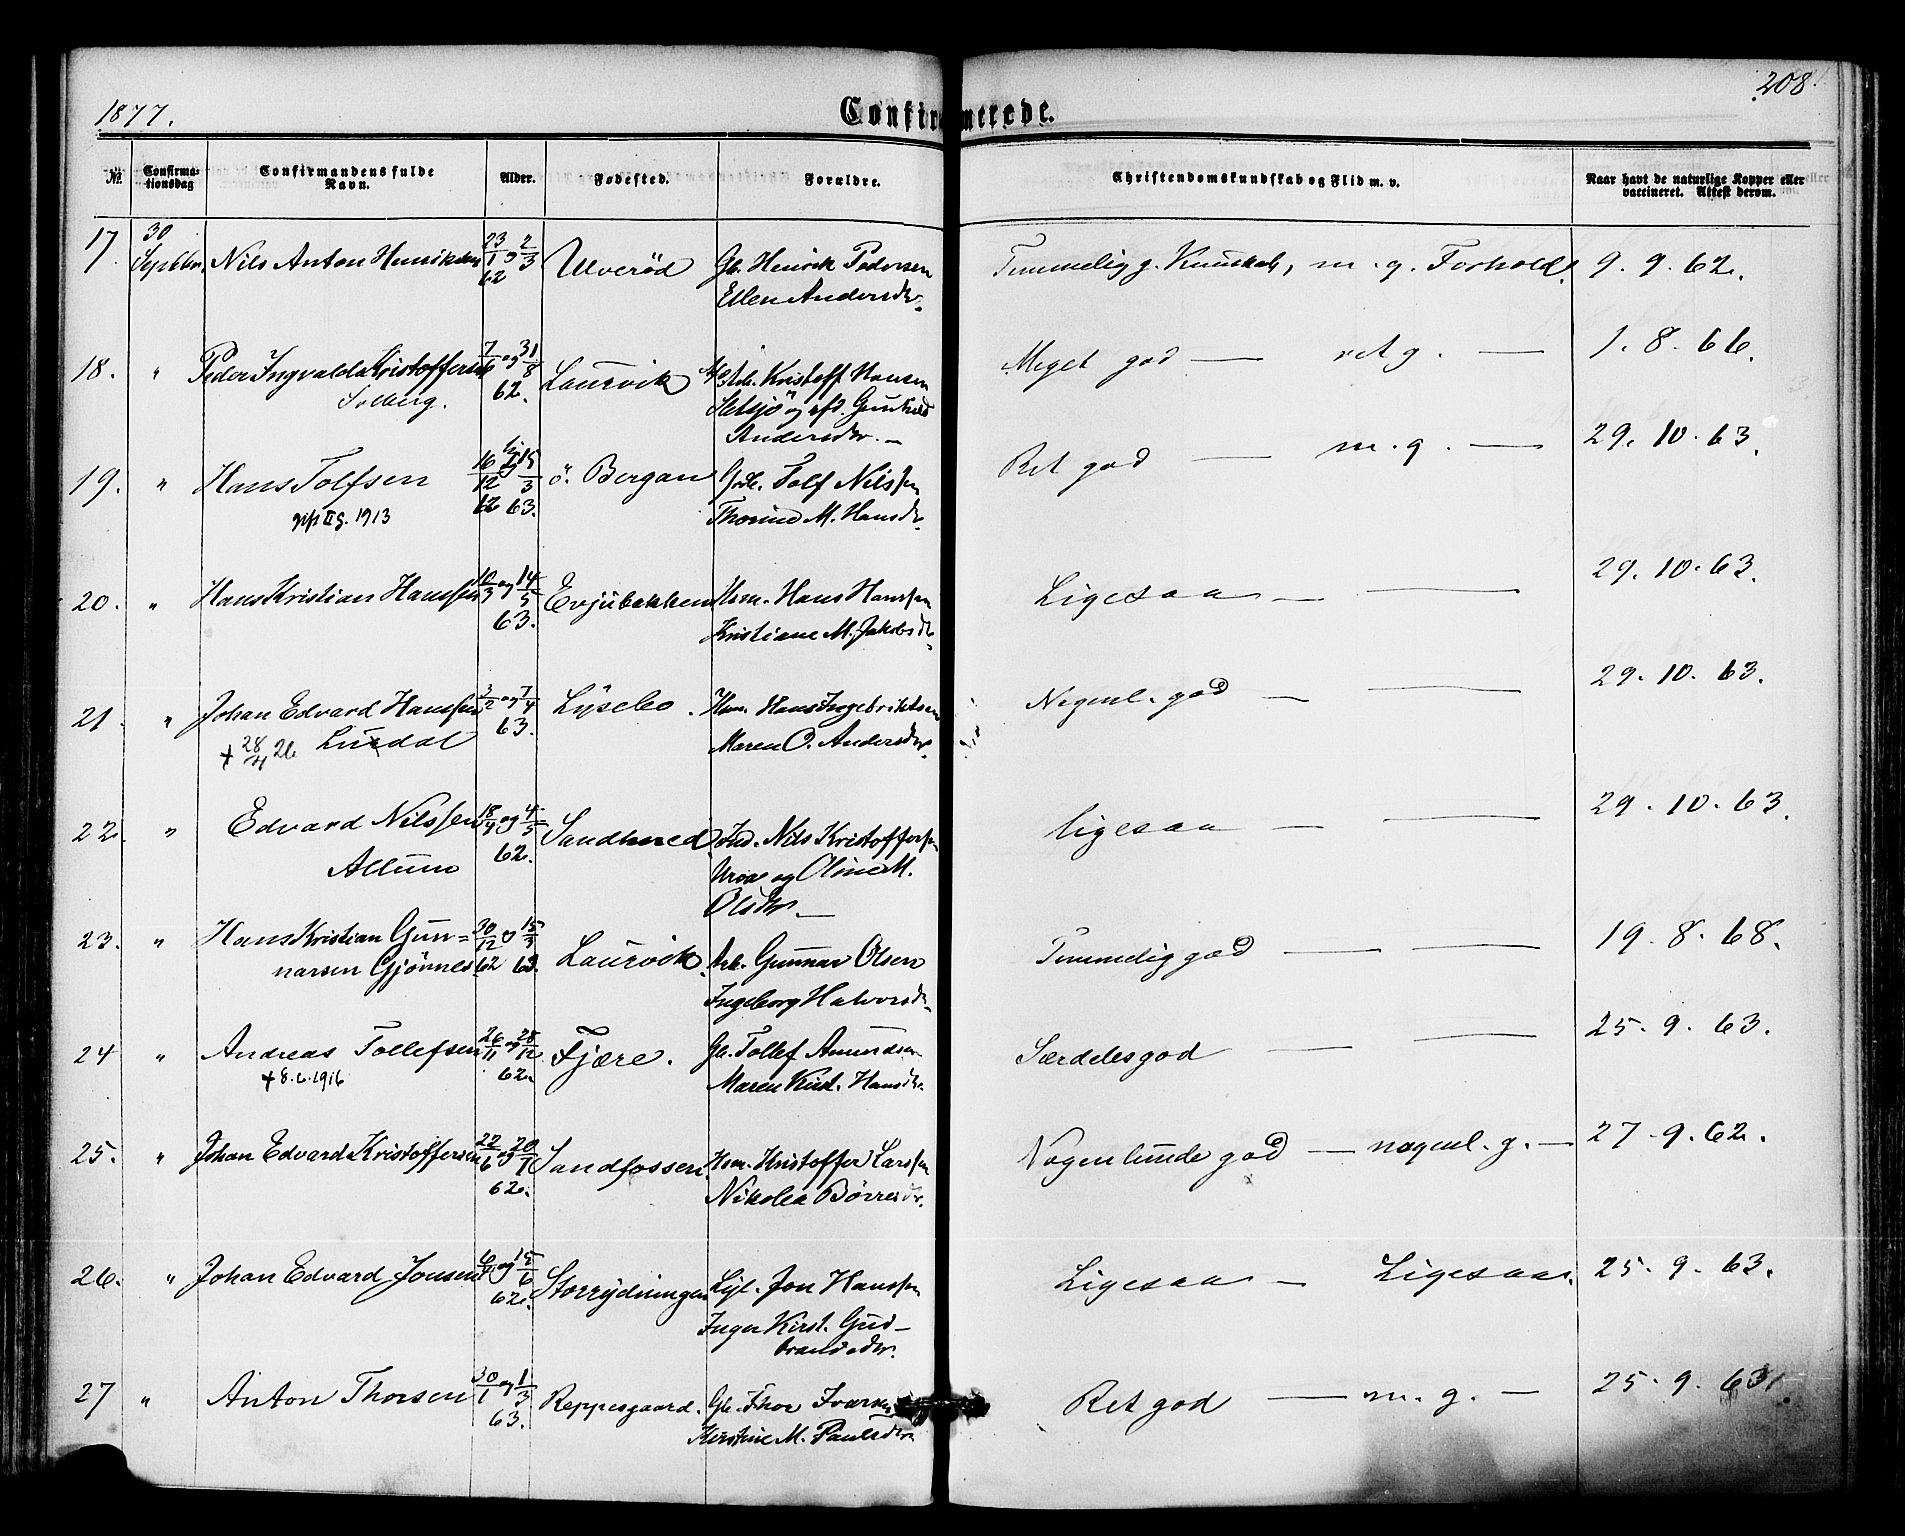 1877.
Confirmerede.
208.
№
Confirma-
tionsdag
Confirmandens fulde
Navn.
Alder.
Fødested.
Forældre.
Christendomskundskab og Flid m. v.
Naar havt de naturlige Kopper eller
vaccineret. Attest derom.
17. 30 Septbr. Nils Anton Henriksen 23/1 og 2/3 62 Ulverød Gb. Henrik Pedersen
Ellen Andersdtr.
Temmelig g. Kundskab, m. g. Forhold. 9. 9. 62.
18. " Peder Ingvald Kristoffersen 7/6 og 31/8 62. Laurvik Kristoff Hansen
Solberg.
og Gunhild
Andersdtr. —
Meget god — ret g. — 1. 8. 66.
19. " Hans Tolfsen 16/12 62 og 15/3 63. ö. Bergan Tolf Nilssen
gift 1913
Thorine M. Hansdtr.
Ret god — m. g. — 29. 10. 63.
20. " Hans Kristian Hanssen 10/3 og 14/5 63. Evjubakken Hsm. Hans Hanssen
Kristiane M. Jakobsdtr.
Ligesaa — — 29. 10. 63.
21. " Johan Edvard Hanssen 3/2 og 7/4 63. Lysebo. Hsm. Hans Ingebriktsen
+ 28/4 26
Maren O. Andersdtr.
Nogenl. god — — 29. 10. 63.
22. " Edvard Nilssen 18/4 og 4/5 62. Ind. Nils Kristoffersen
Allum
og Oline M.
Olsdtr. —
ligesaa — — 29. 10. 63.
23. " Hans Kristian Gun= 30/12 62 og 15/3 63. Laurvik. Arb. Gunnar Olsen
narsen Gjønnes
Ingeborg Halvorsdtr.
Temmelig god — — 19. 8. 68.
24 " Andreas Tollefsen 26/11 og 28/12 62. Fjære. Gb. Tollef Amundsen
+ 8.6.1916
Maren Kirst. Hansdtr.
Særdeles god — — 25. 9. 63.
25. " Johan Edvard Kristoffersen 22/6 og 20/7 62. Sandfossen. Hsm. Kristoffer Larssen
Nikolea Børresdtr.
Nogenlunde god — nogenl. g. — 27. 9. 62.
26. " Johan Edvard Jonsen og 15/6 62. Storrydningen Jon Hanssen
Inger Kirst. Gud-
brandsdtr.
Ligesaa — Ligesaa. 25. 9. 63.
27 " Anton Thorsen 30/1 og 1/3 63. Reppesgaard. Gb. Thor Ivarsen
Kirstine M. Paulsdtr.
Ret god — m. g. — 25. 9. 63.